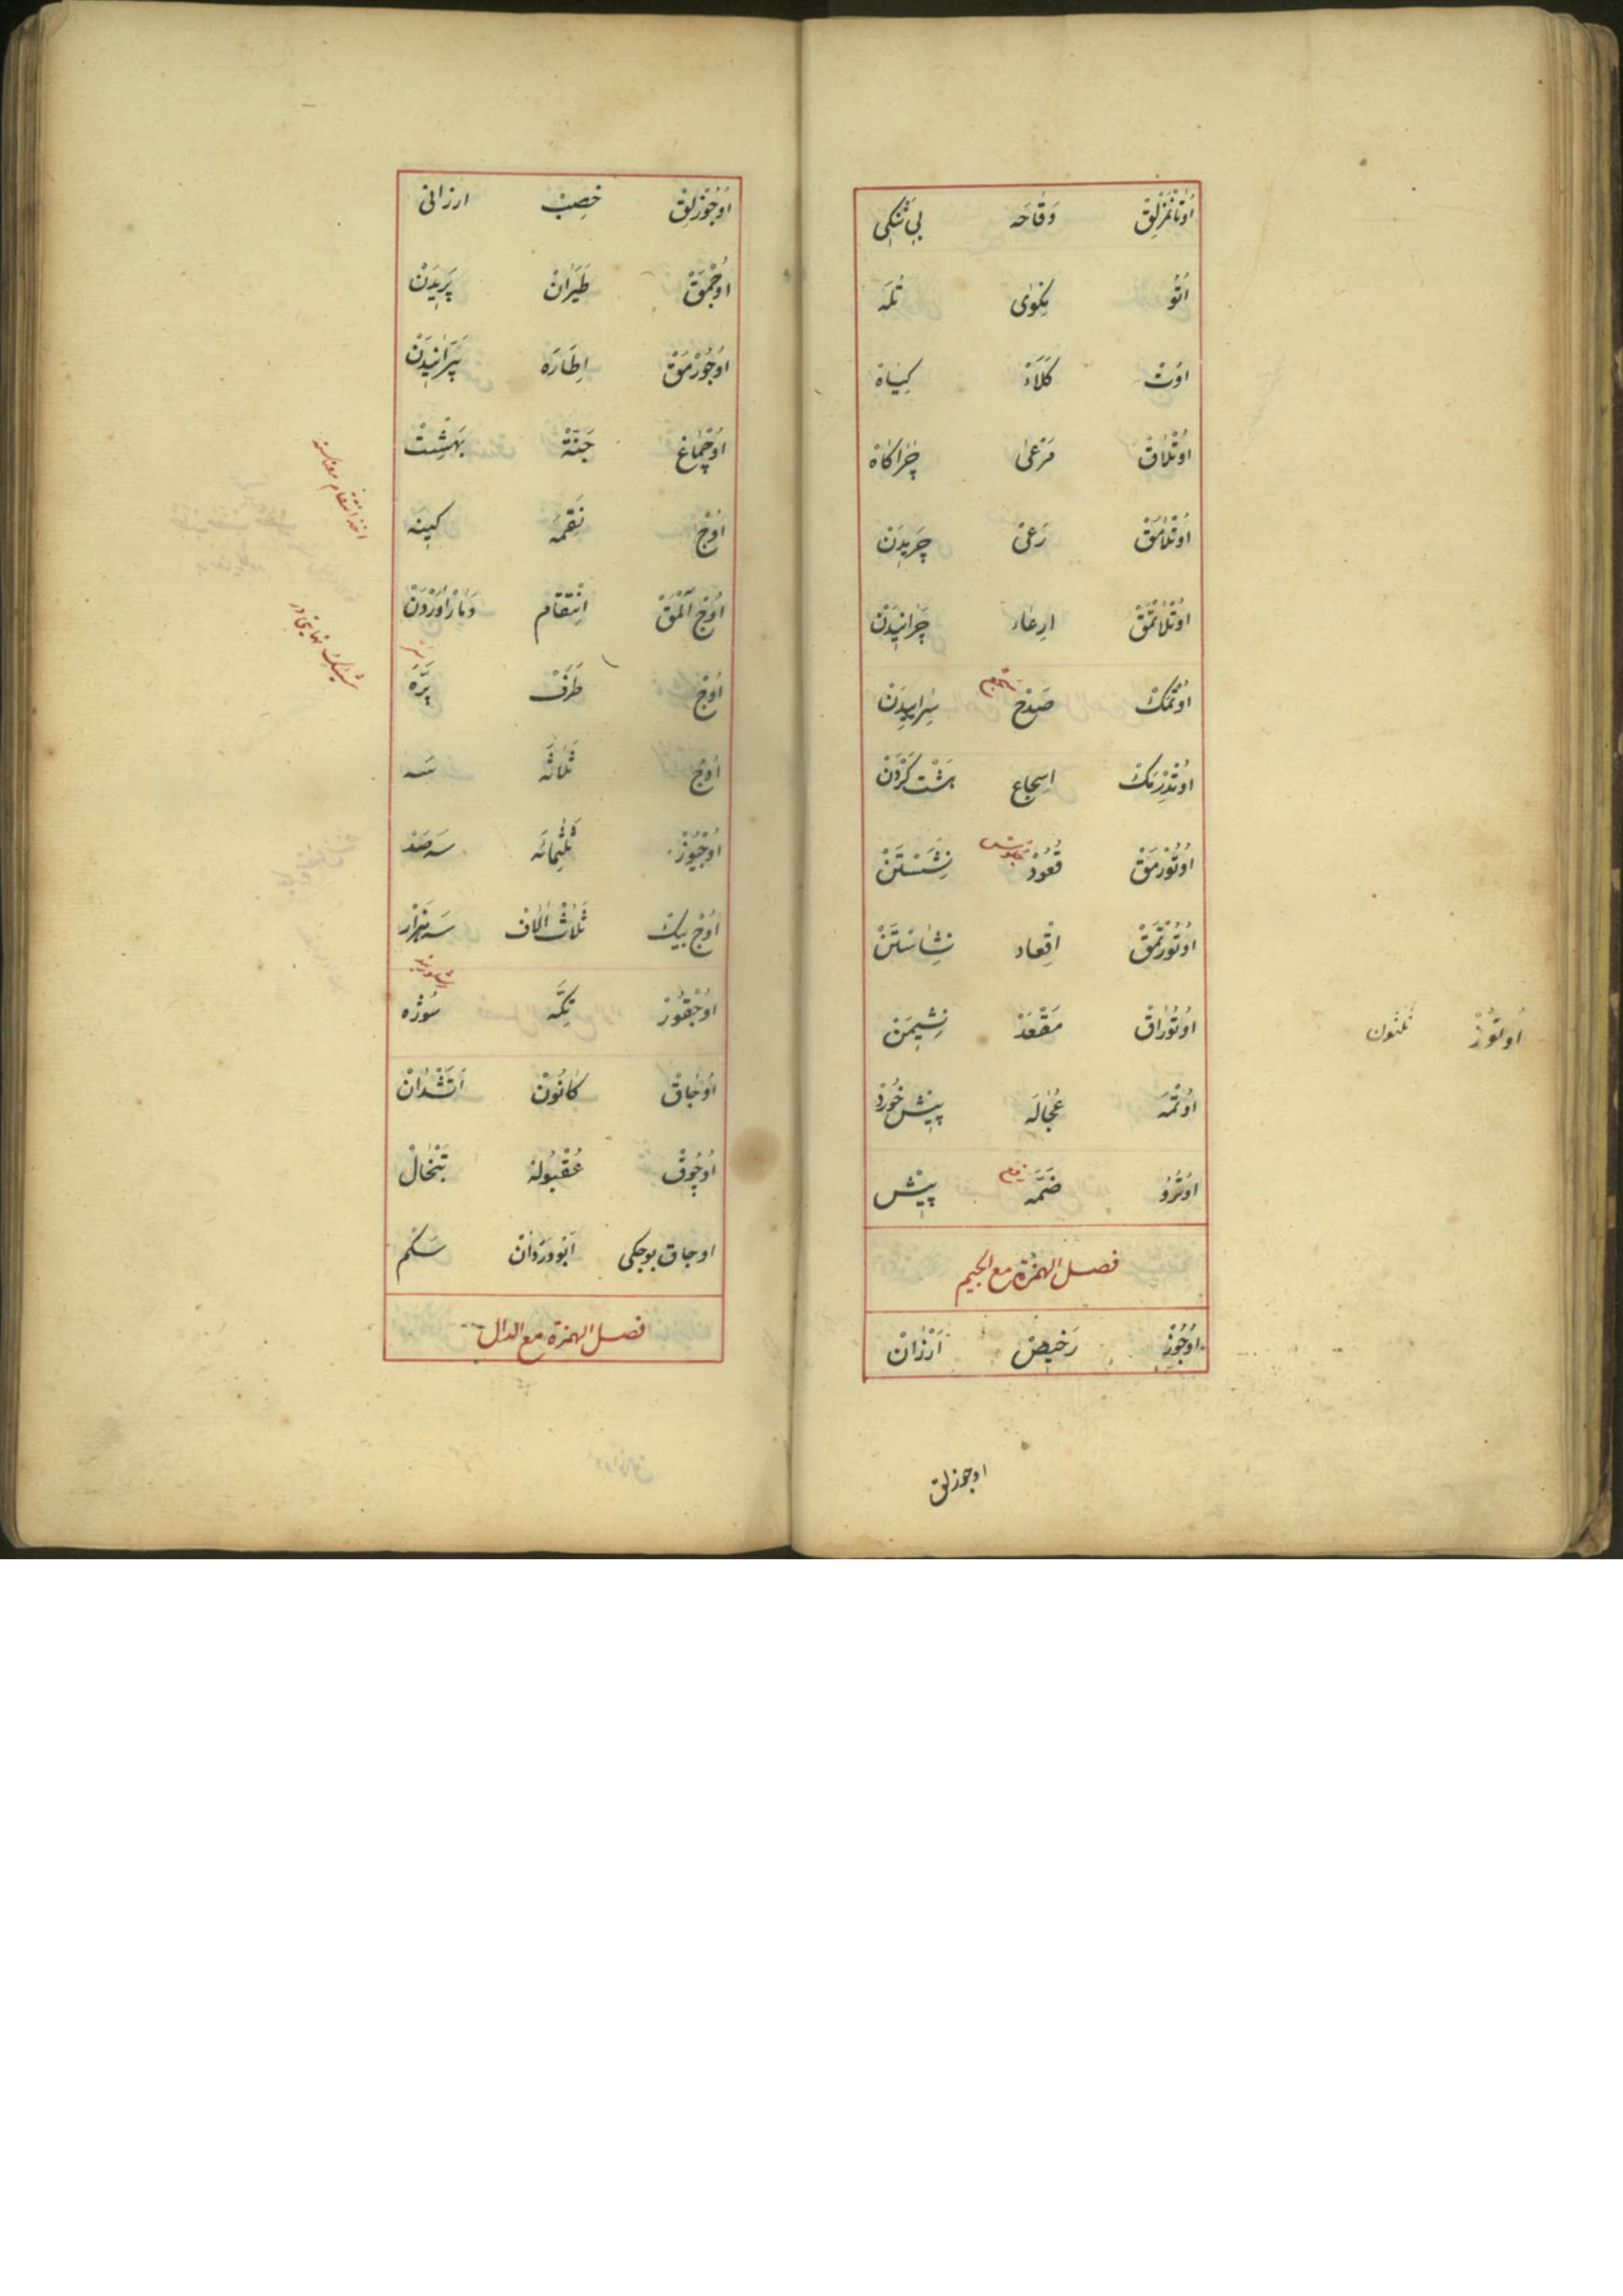 اُوتَانْمَزْلِقْ وَقَاحَه بِي نَنْكِي
اُتُو مِكْوٰى تُلَه
اوُتْ كَلَاءْ كِيَاهْ
اوُتْلَاقْ مَرْعٰى چَرَاكَاهْ
اوُتْلَامَقْ رَعْىْ چَرِيدَنْ
اوُتْلَاتْمَقْ ارِعَاء چَرَانِيدَنْ
اوُتْمَكْ صَدْحْ سِرَايِيدَنْ
اوُتْدِرْمَكْ اسِجَاع بَشْت كَرْدَنْ
اوُتُورْمَقْ قُعُودْ جلوس نِشَسْتَنْ
اوُتُورْتْمَقْ اقِعَاد نِشَاسْتَنْ
اوُتُورَاقْ مَقْعَدْ نِشِيمَنْ
اُوتُوزْ ثَلٰثُون
اوُتْمَه عُجَالَه پِيشْ خُورْدْ
اوُتْرُو ضَمَّه پِيشْ
فصل الهمزة مع الجيم
اوُجُوزْ رَخِيصْ اَرْزَانْ
اوجوزلق
اوُجُوزْلِقْ خِصِبْ ارزانى
اوُجْمَقْ طَيَرَانْ پَرِيدَنْ
اوُجُورْمَقْ اِطَارَه پَرَانِيدَنْ
اوُچْمَاغْ جَنَّةْ بَهِشْتْ
اُوجْ نَقِمَه كِينَه
اخذ انتقام معناسنه
اُوجْ آلْمَقْ انْتِقَام دَمَارْ اَوَرْدَنْ
اُوجْ طَرَفْ پَرَّه
اُوجْ ثَلَاثَه سَه
اوُجْيُوزْ ثَلٰثُمِائَه سَه صَدْ
اُوجْ بيكْ ثَلَاثْ اٰلَافْ سَه هَزَارْ
اوُجْقُورْ تِكَّه سُوزَه
اوُجَاقْ كَانُونْ اَتَشْدَانْ
اوُجُوقْ عُقْبُولَه تَبْخَالْ
اوجاق بوجكى اَبُو وَرْدَانْ سَكْم
فصل الهمزة مع الدال